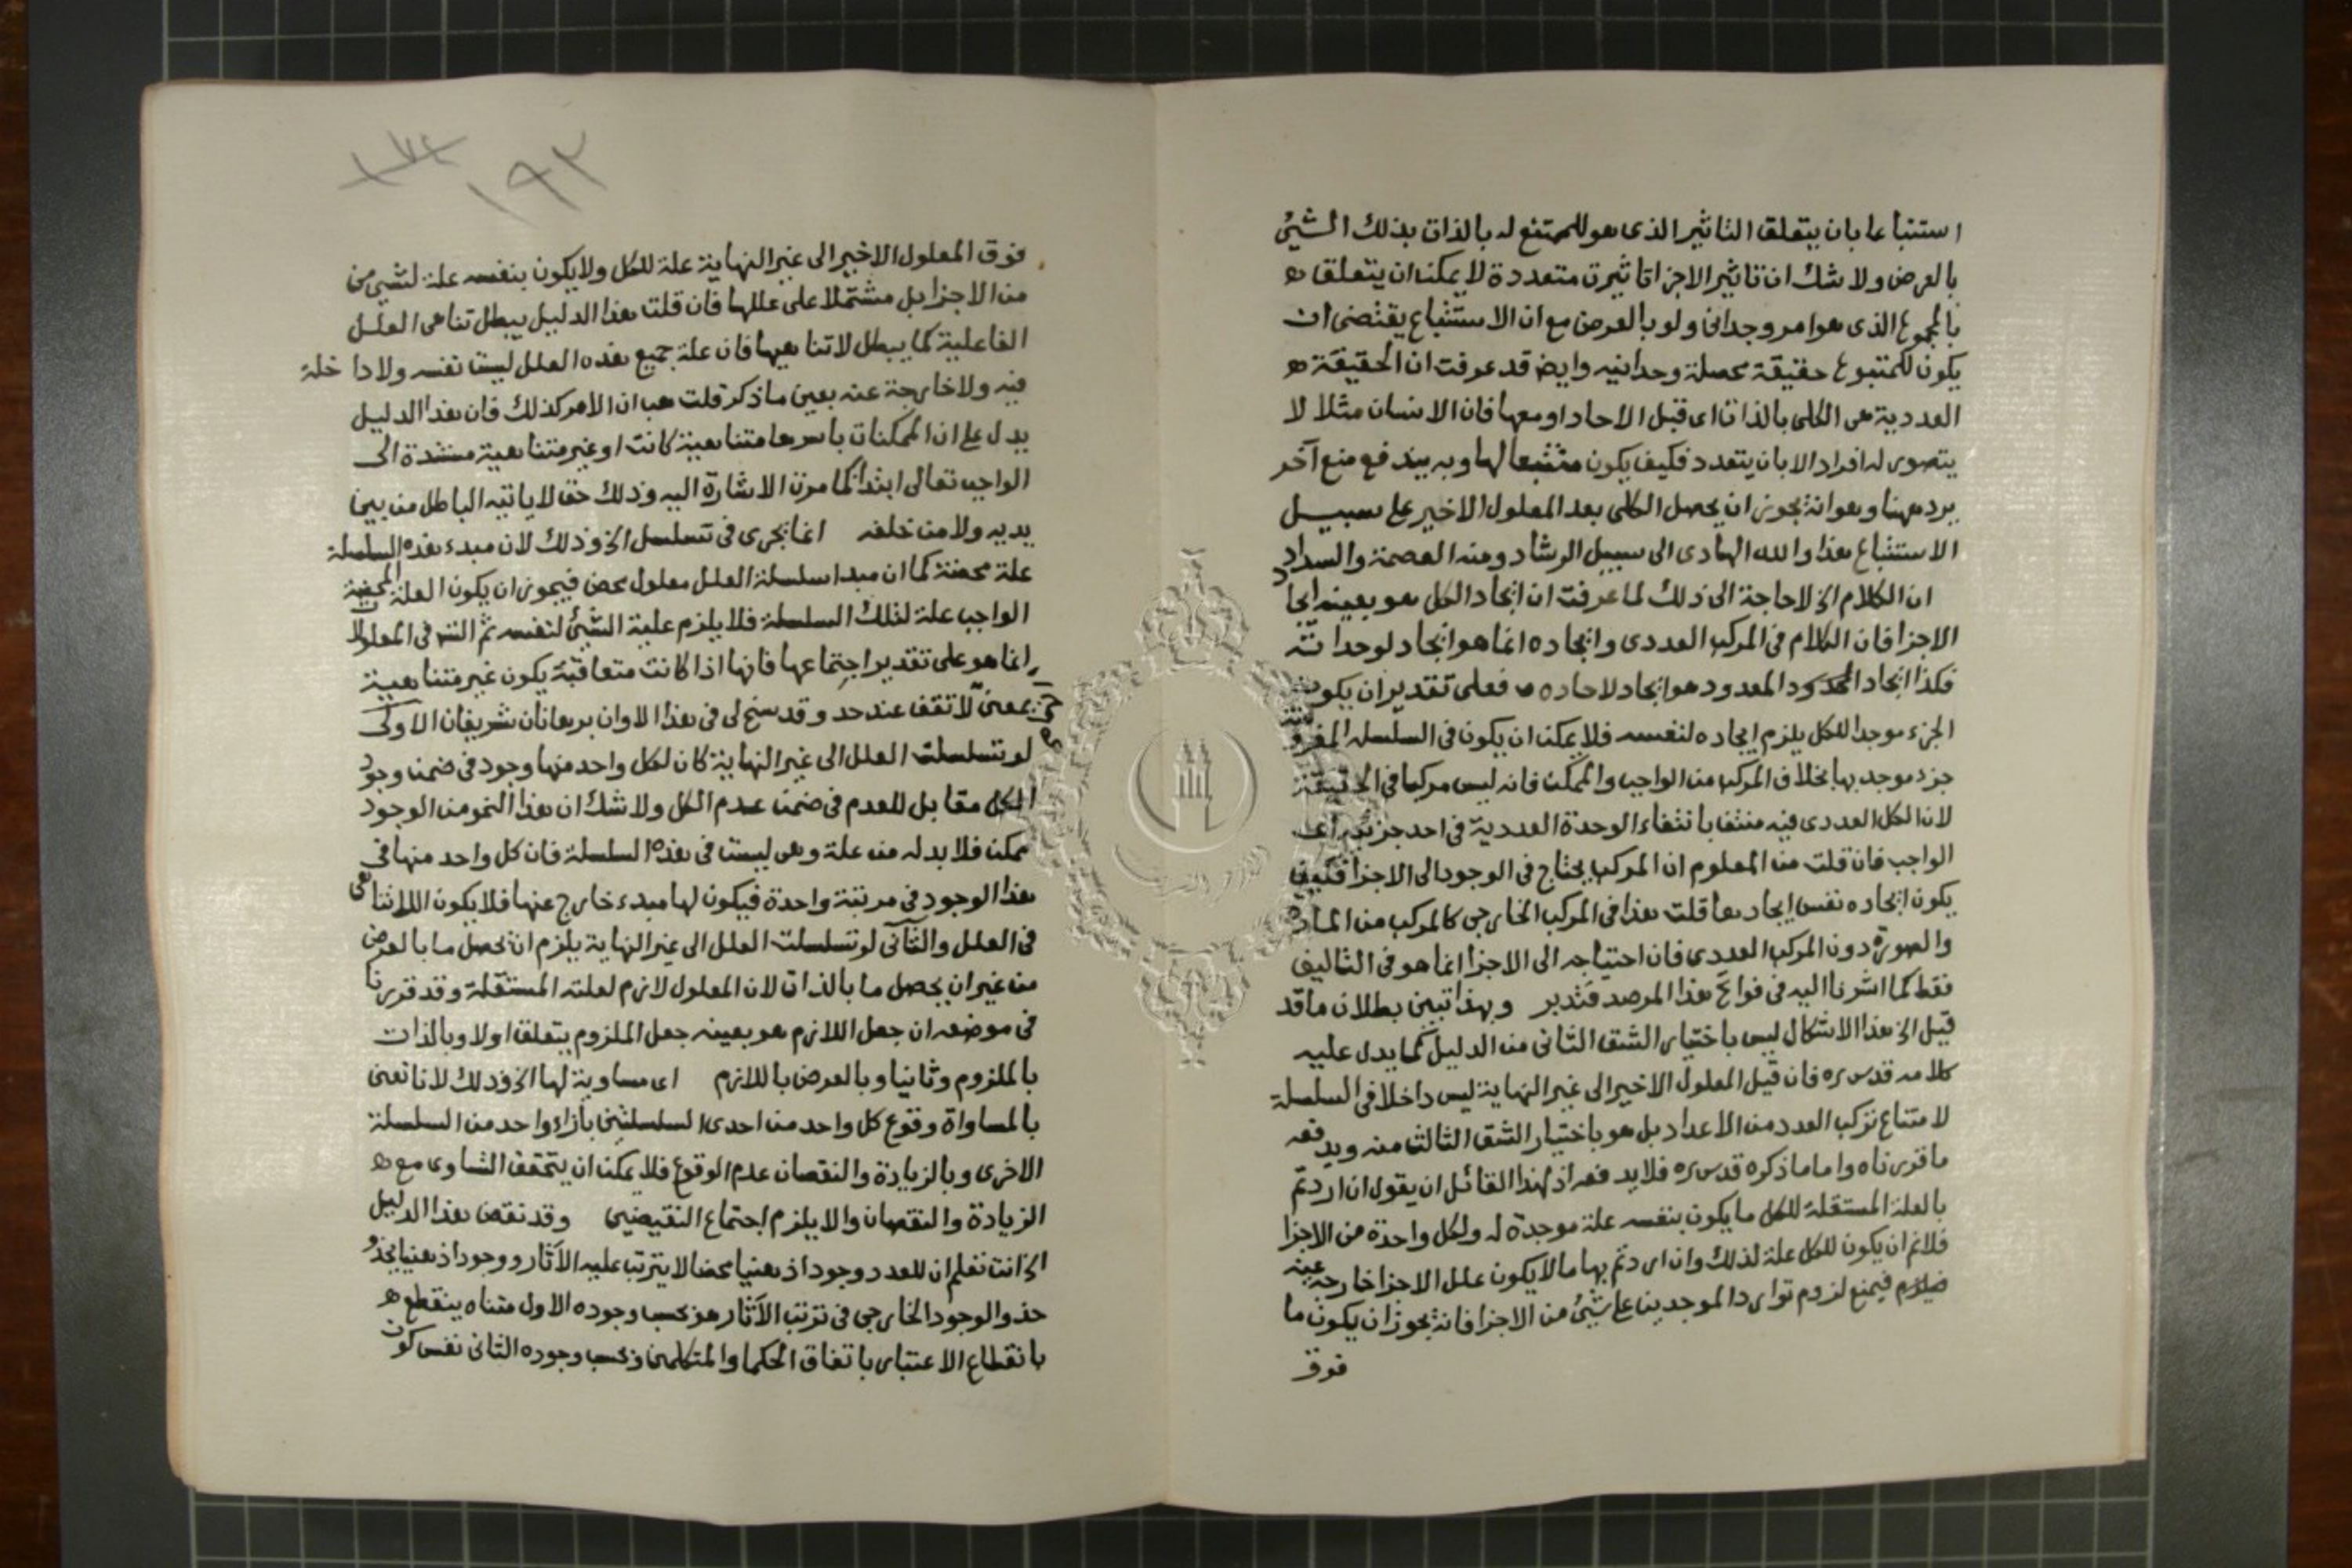 استتباعا بان يتعلق التاثير الذى هو للمتتبع له بالذات بذلك الشيئ
بالعرض ولا شك ان تاثير الاجزا تاثيرت متعددة لا يمكن ان يتعلق ه
بالمجموع الذى هو امر وحدانى ولو بالعرض مع ان الاستتباع يقتضى ان
يكون للمتبوع حقيقة محصلة وحدانيه وايض قد عرفت ان الحقيقة ه
العددية هى الكلى بالذات اى قبل الاحاد او معها فان الانسان مثلا لا
يتصور له افراد الا بان يتعدد فكيف يكون متتبعا لها وبه يندفع منع آخر
يرد ههنا وهو انه يجوز ان يحصل الكلى بعد المعلول الاخير على سبيل
الاستتباع هذا والله الهادى الى سبيل الرشاد ومنه العصمة والسداد
ان الكلام الخ لا حاجة الى ذلك لما عرفت ان ايجاد الكل هو بعينه ايجا
الاجزا فان الكلام فى المركب العددى وايجاده انما هو ايجاد لوحداته
فكذا ايجاد المعدود هو ايجاد لاحاده فعلى تقدير ان يكون
الجزء موجدا للكل يلزم ايجاده لنفسه فلا يمكن ان يكون فى السلسله المفروضة
جزء موجد بها بخلاف المركب من الواجب والممكن فانه ليس مركبا فى الحقيقة
لان الكل العددى فيه منتف بانتفاء الوحدة العددية فى احد جزئيه اى
الواجب فان قلت من المعلوم ان المركب يحتاج فى الوجود الى الاجزا فكيف
يكون ايجاده نفس ايجادها قلت هذا فى المركب الخارجى كالمركب من المادة
والصورة دون المركب العددى فان احتياجه الى الاجزا انما هو فى التاليف
فقط كما اشرنا اليه فى فواتح هذا المرصد فتدبر وبهذا تبين بطلان ما قد
قيل الخ هذا الاشكال ليس باختيار الشق الثانى من الدليل كما يدل عليه
كلامه قدس ره فان قيل المعلول الاخير الى غير النهاية ليس داخلا فى السلسلة
لامتناع تركب العدد من الاعداد بل هو باختيار الشق الثالث منه ويدفعه
ما قررناه واما ما ذكره قدس ره فلا يدفعه اذ لهذا القائل ان يقول ان اردتم
بالعلة المستقلة للكل ما يكون بنفسه علة موجدة له ولكل واحدة من الاجزا
فلانم ان يكون للكل علة لذلك وان اردتم بها ما لا يكون علل الاجزا خارجة عنه
فيمنع لزوم توارد الموجدين على شيئ من الاجزا فانه يجوز ان يكون ما
فوق
١٩٣
فوق المعلول الاخير الى غير النهاية علة للكل ولا يكون بنفسه علة لشيئ من
من الاجزا بل مشتملا على عللها فان قلت هذا الدليل يبطل تناهى العلل
الفاعلية كما يبطل لا تناهيها فان علة جميع هذه العلل ليست نفسه ولا داخلة
فيه ولا خارجة عنه بعين ما ذكر قلت هب ان الامر كذلك فان هذا الدليل
يدل على ان الممكنات باسرها متناهية كانت او غير متناهية مستندة الى
الواجب تعالى ابتدأ كما مرت الاشارة اليه وذلك حق لا ياتيه الباطل من بين
يديه ولا من خلفه انما يجرى فى تسلسل الخ وذلك لان مبدء هذه السلسلة
علة محضة كما ان مبدا سلسلة العلل معلول محض فيجوز ان يكون العلة المحضة
الواجب علة لتلك السلسلة فلا يلزم علية الشيئ لنفسه ثم التس فى المعلولا
انما هو على تقدير اجتماعها فانها اذا كانت متعاقبة يكون غير متناهية
بمعنى لا تقف عند حد وقد سنح لى فى هذا الاوان برهانان شريفان الاولى
لو تسلسلت العلل الى غير النهاية كان لكل واحد منها وجود فى ضمن وجود
الكل مقابل للعدم فى ضمن عدم الكل ولا شك ان هذا النحو من الوجود
ممكن فلا بد له من علة وهى ليست فى هذه السلسلة فان كل واحد منها فى
هذا الوجود فى مرتبة واحدة فيكون لها مبدء خارج عنها فلا يكون اللاتناهى
فى العلل والثانى لو تسلسلت العلل الى غير النهاية يلزم ان يحصل ما بالعرض
من غير ان يحصل ما بالذات لان المعلول لازم لعلته المستقلة وقد قررنا
فى موضعه ان جعل اللازم هو بعينه جعل الملزوم يتعلق اولا وبالذات
بالملزوم وثانيا وبالعرض باللازم اى مساوية لها الخ وذلك لانا نعنى
بالمساواة وقوع كل واحد من احدى السلسلتين بازاء واحد من السلسلة
الاخرى وبالزيادة والنقصان عدم الوقوع فلا يمكن ان يتحقق التساوى مع ه
الزيادة والنقصان والا يلزم اجتماع النقيضين وقد نقض هذا الدليل
الخ انت تعلم ان للعدد وجودا ذهنيا محضا لا يترتب عليه الآثار ووجودا ذهنيا يحذو
حذو الوجود الخارجى فى ترتب الآثار فهو بحسب وجوده الاول متناه ينقطع ه
بانقطاع الاعتبار باتفاق الحكما والمتكلمين وبحسب وجوده الثانى نفس كون